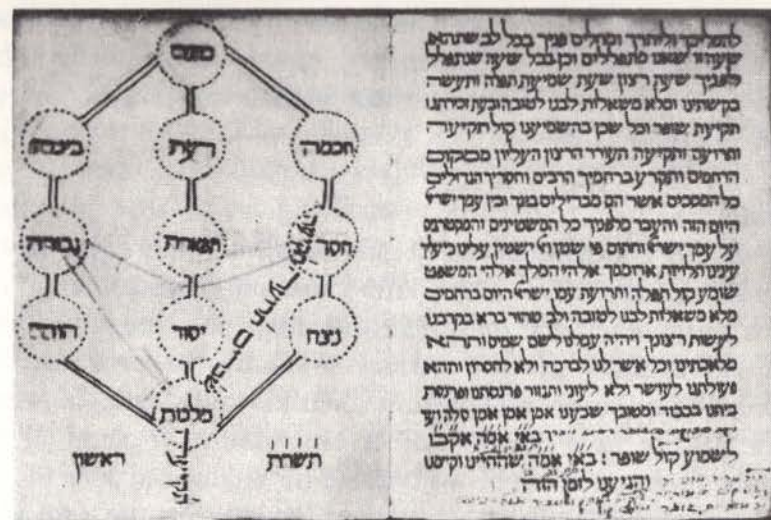 להמליכך וליחדך ומחלים פניך בכל לב שתהא
שעה זו שאנו מתפללים וכן בכל שעה שנתפלל
לפניך שעת רצון שעת שמיעת תפלה ותעשה
בקשתינו ומלא משאלות לבנו לטובה
תקיעת שופר וכל שכן בהשמיענו קול תקיעה
ותרועה ותקיעה תעורר הרצון העליון ממקום
הרחמים ותקרע ברחמיך הרבים וחסדיך הגדולים
כל המסכים אשר הם מבדילים בנך ובין עמך ישר'
היום הזה והעבר מלפניך כל המשטינים והמקטרגים
על עמך ישר' וחתום פי שטן ואל ישטין עלינו כי עליך
עינינו תלויות ארוממך אלהי המלך אלהי המשפט
שומע קול תפלה ותרועת עמו ישר' היום ברחמים
מלא משאלות לבנו לטובה ולב טהור ברא בקרבנו
לעשות רצונך ויהיה עמלנו לשם שמים ותהא
מלאכתינו וכל אשר לנו לברכה ולא לחסרון ותהא
פעולתנו לעושר ולא לעוני ותגזור פרנסתנו ופרנסת
ביתנו בכבוד ומטובך שבענו אמן אמן אמן סלה ועד
באי אמה אקבו
לשמוע קול שופר : באי אמה שהחיינו וקימנו
והגיענו לזמן הזה
כתר
חכמה דעת בינה
חסד תפארת גבורה
נצח יסוד הוד
תקיעה
שברים תרועה
מלכות
תקיעה
תשרת ראשון